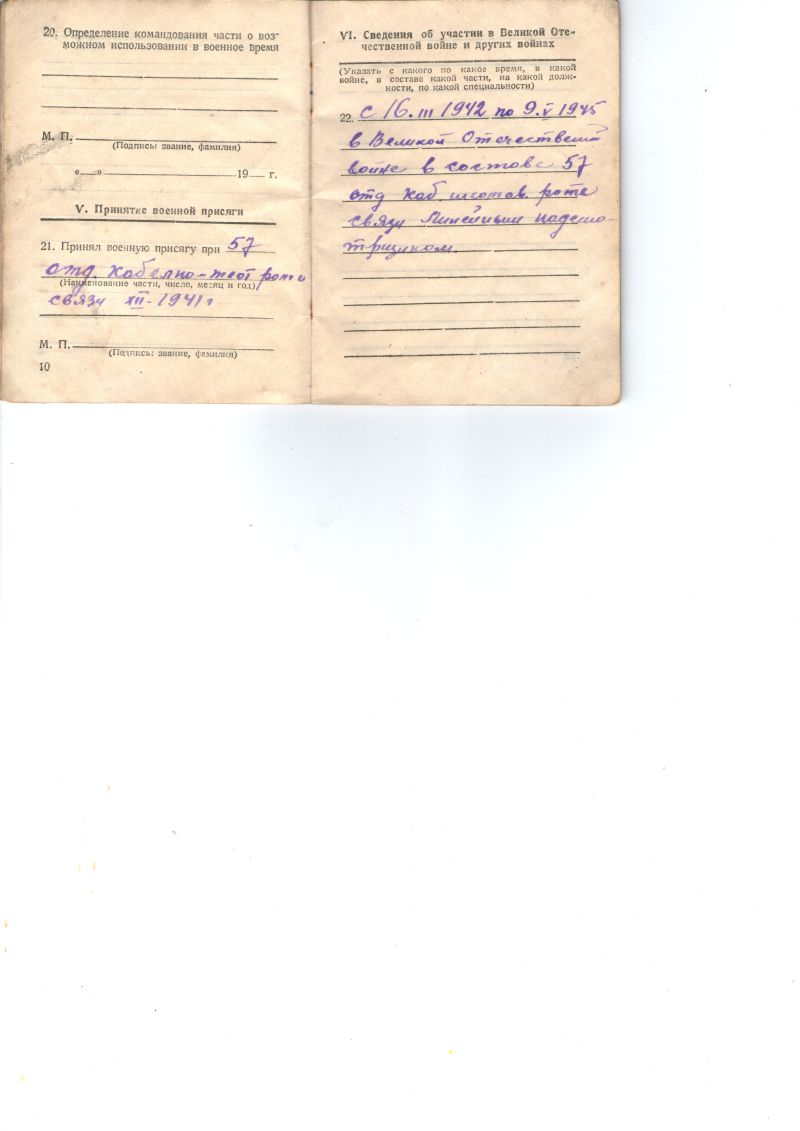 20. Определение командования части о воз-
можном использовании в военное время
М. П.
(Подпись: звание, фамилия)
«—» 19— г.
V. Принятие военной присяги
21. Принял военную присягу при 57
отд. кабелно-
(Наименование части, число, месяц и год)
связи XII-1941 г
М. П.
(Подпись: звание, фамилия)
10
VI. Сведения об участии в Великой Оте-
чественной войне и других войнах
(Указать с какого по какое время, в какой
войне, в составе какой части, на какой долж-
ности, по какой специальности)
22. с 16.III 1942 по 9.V 1945
в Великой Отечественной
войне в составе 57
отд каб. роте
связи Линейным надсмо-
трщиком.